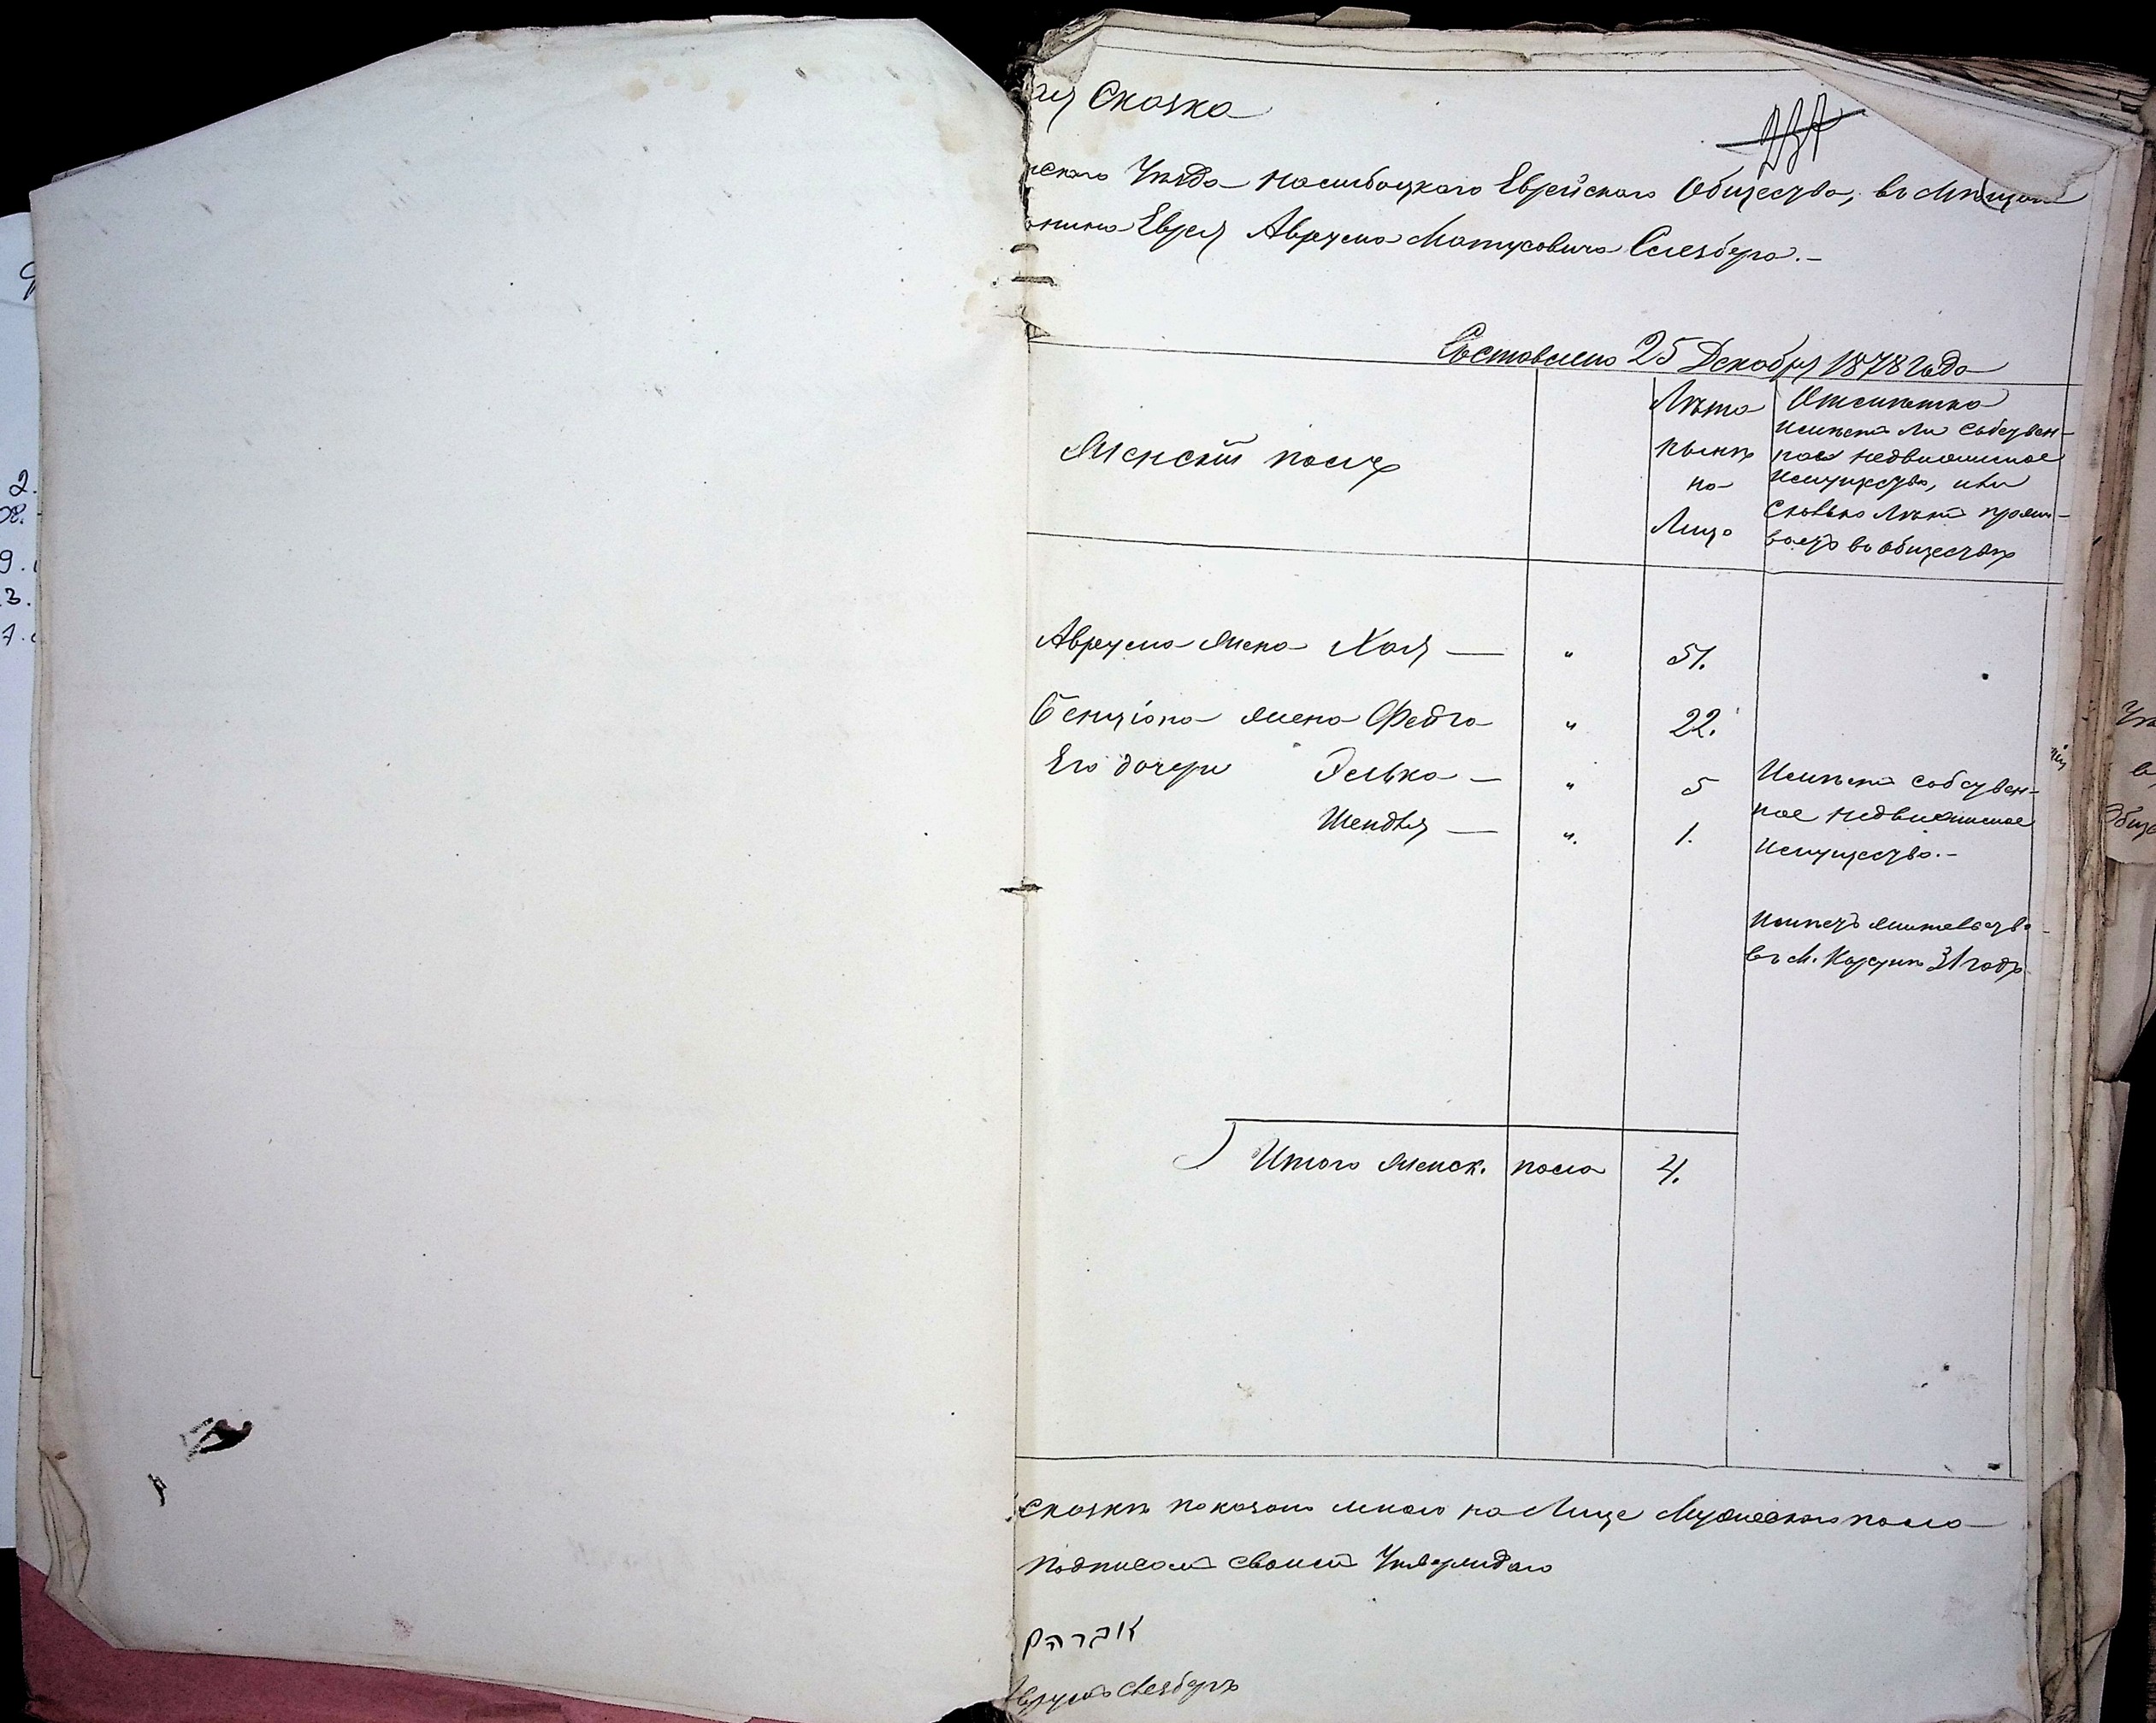 ая Сказка
237
нского Уѣзда Насибоцкаго Еврейскаго Общества, въ Мѣщан
анина Еврея Аврума Матусовича Слезбера.-
Составлено 25 Декабря 1878 Года
Женскій полъ
Лѣта
нынѣ
на
Лицо
Отмѣтка
Имѣетъ ли собствен-
ное недвижимое
имущество, или
сколько лѣтъ прожи-
ваетъ въ обществѣ
Аврума жена Хая — " 51.
Бенціона жена Фейга " 22.
Его дочери Элька — " 5
Шендля — ". 1.
Имѣетъ собствен-
ное недвижимое
имущество.-
Имѣетъ жительство
въ М. Корсунѣ 31 годъ
Итого женск. пола 4.
сказкѣ показано много на Лице Мужескаго пола
подписомъ своимъ Утверждаю
אברהם
Аврумъ Слезберъ
2.
08.
9.
3.
7.